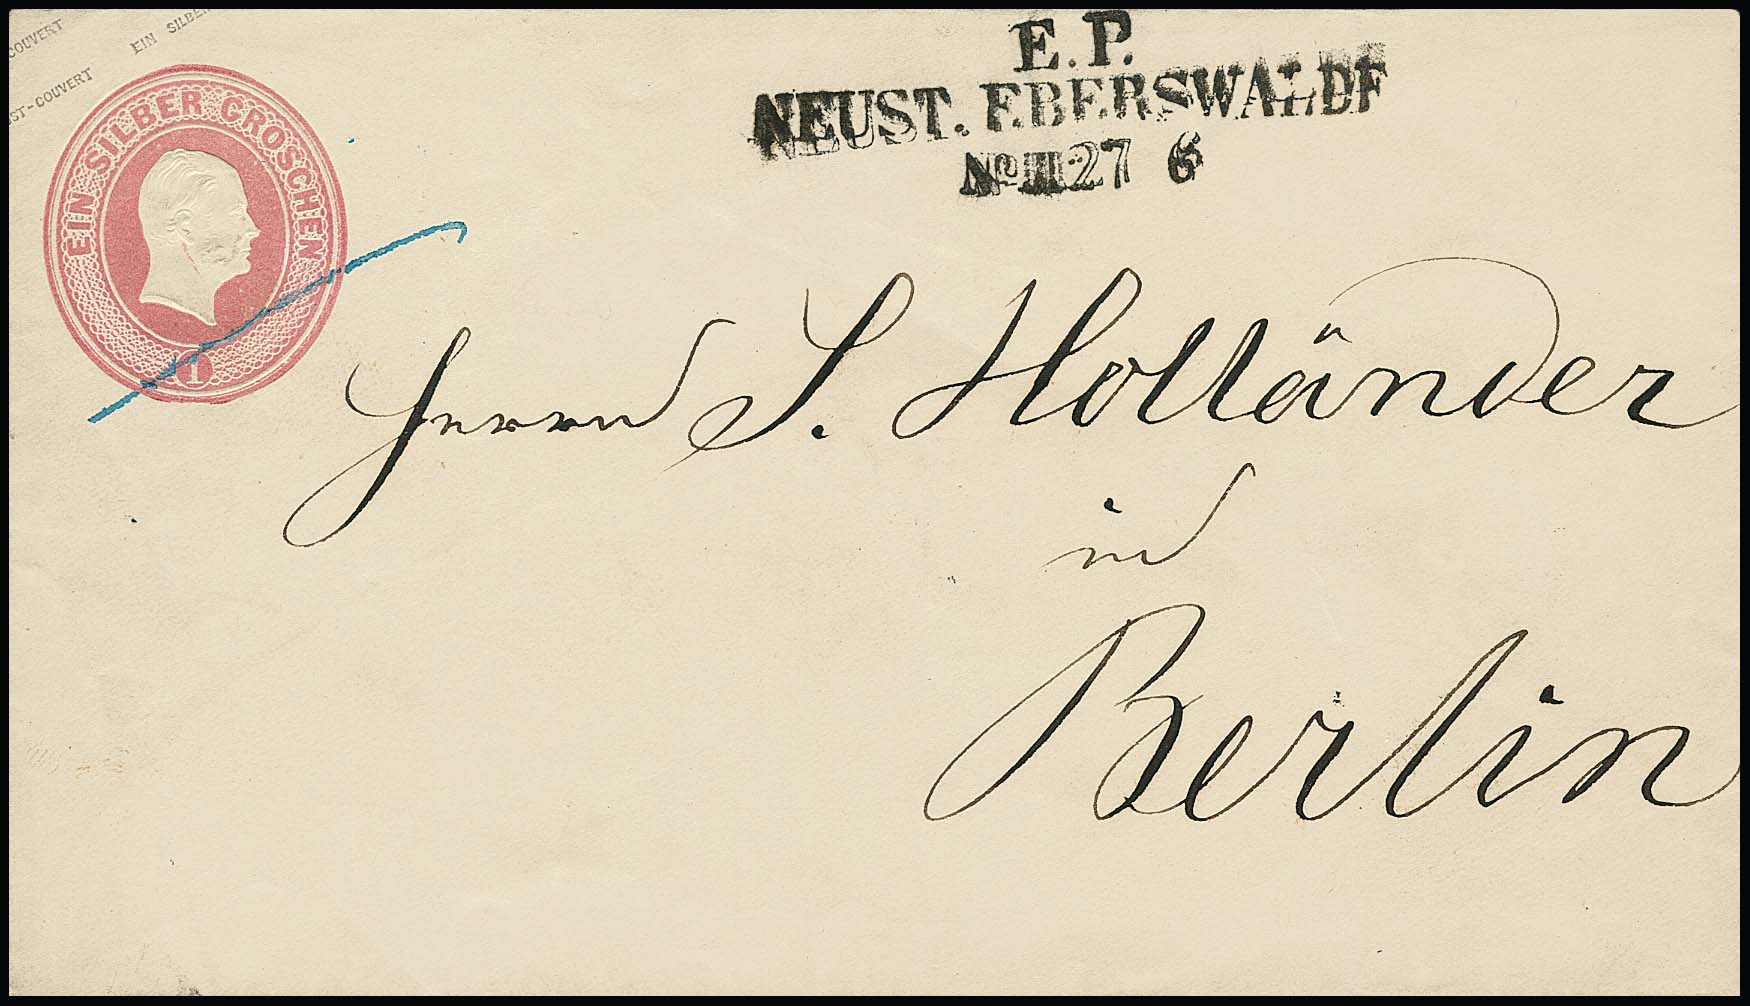 COUVERT
EIN SILBER
ST-COUVERT
EIN SILBER GROSCHEN
1
E. P.
NEUST. EBERSWALDE
No III 27 6
Herrn S. Holländer
in
Berlin